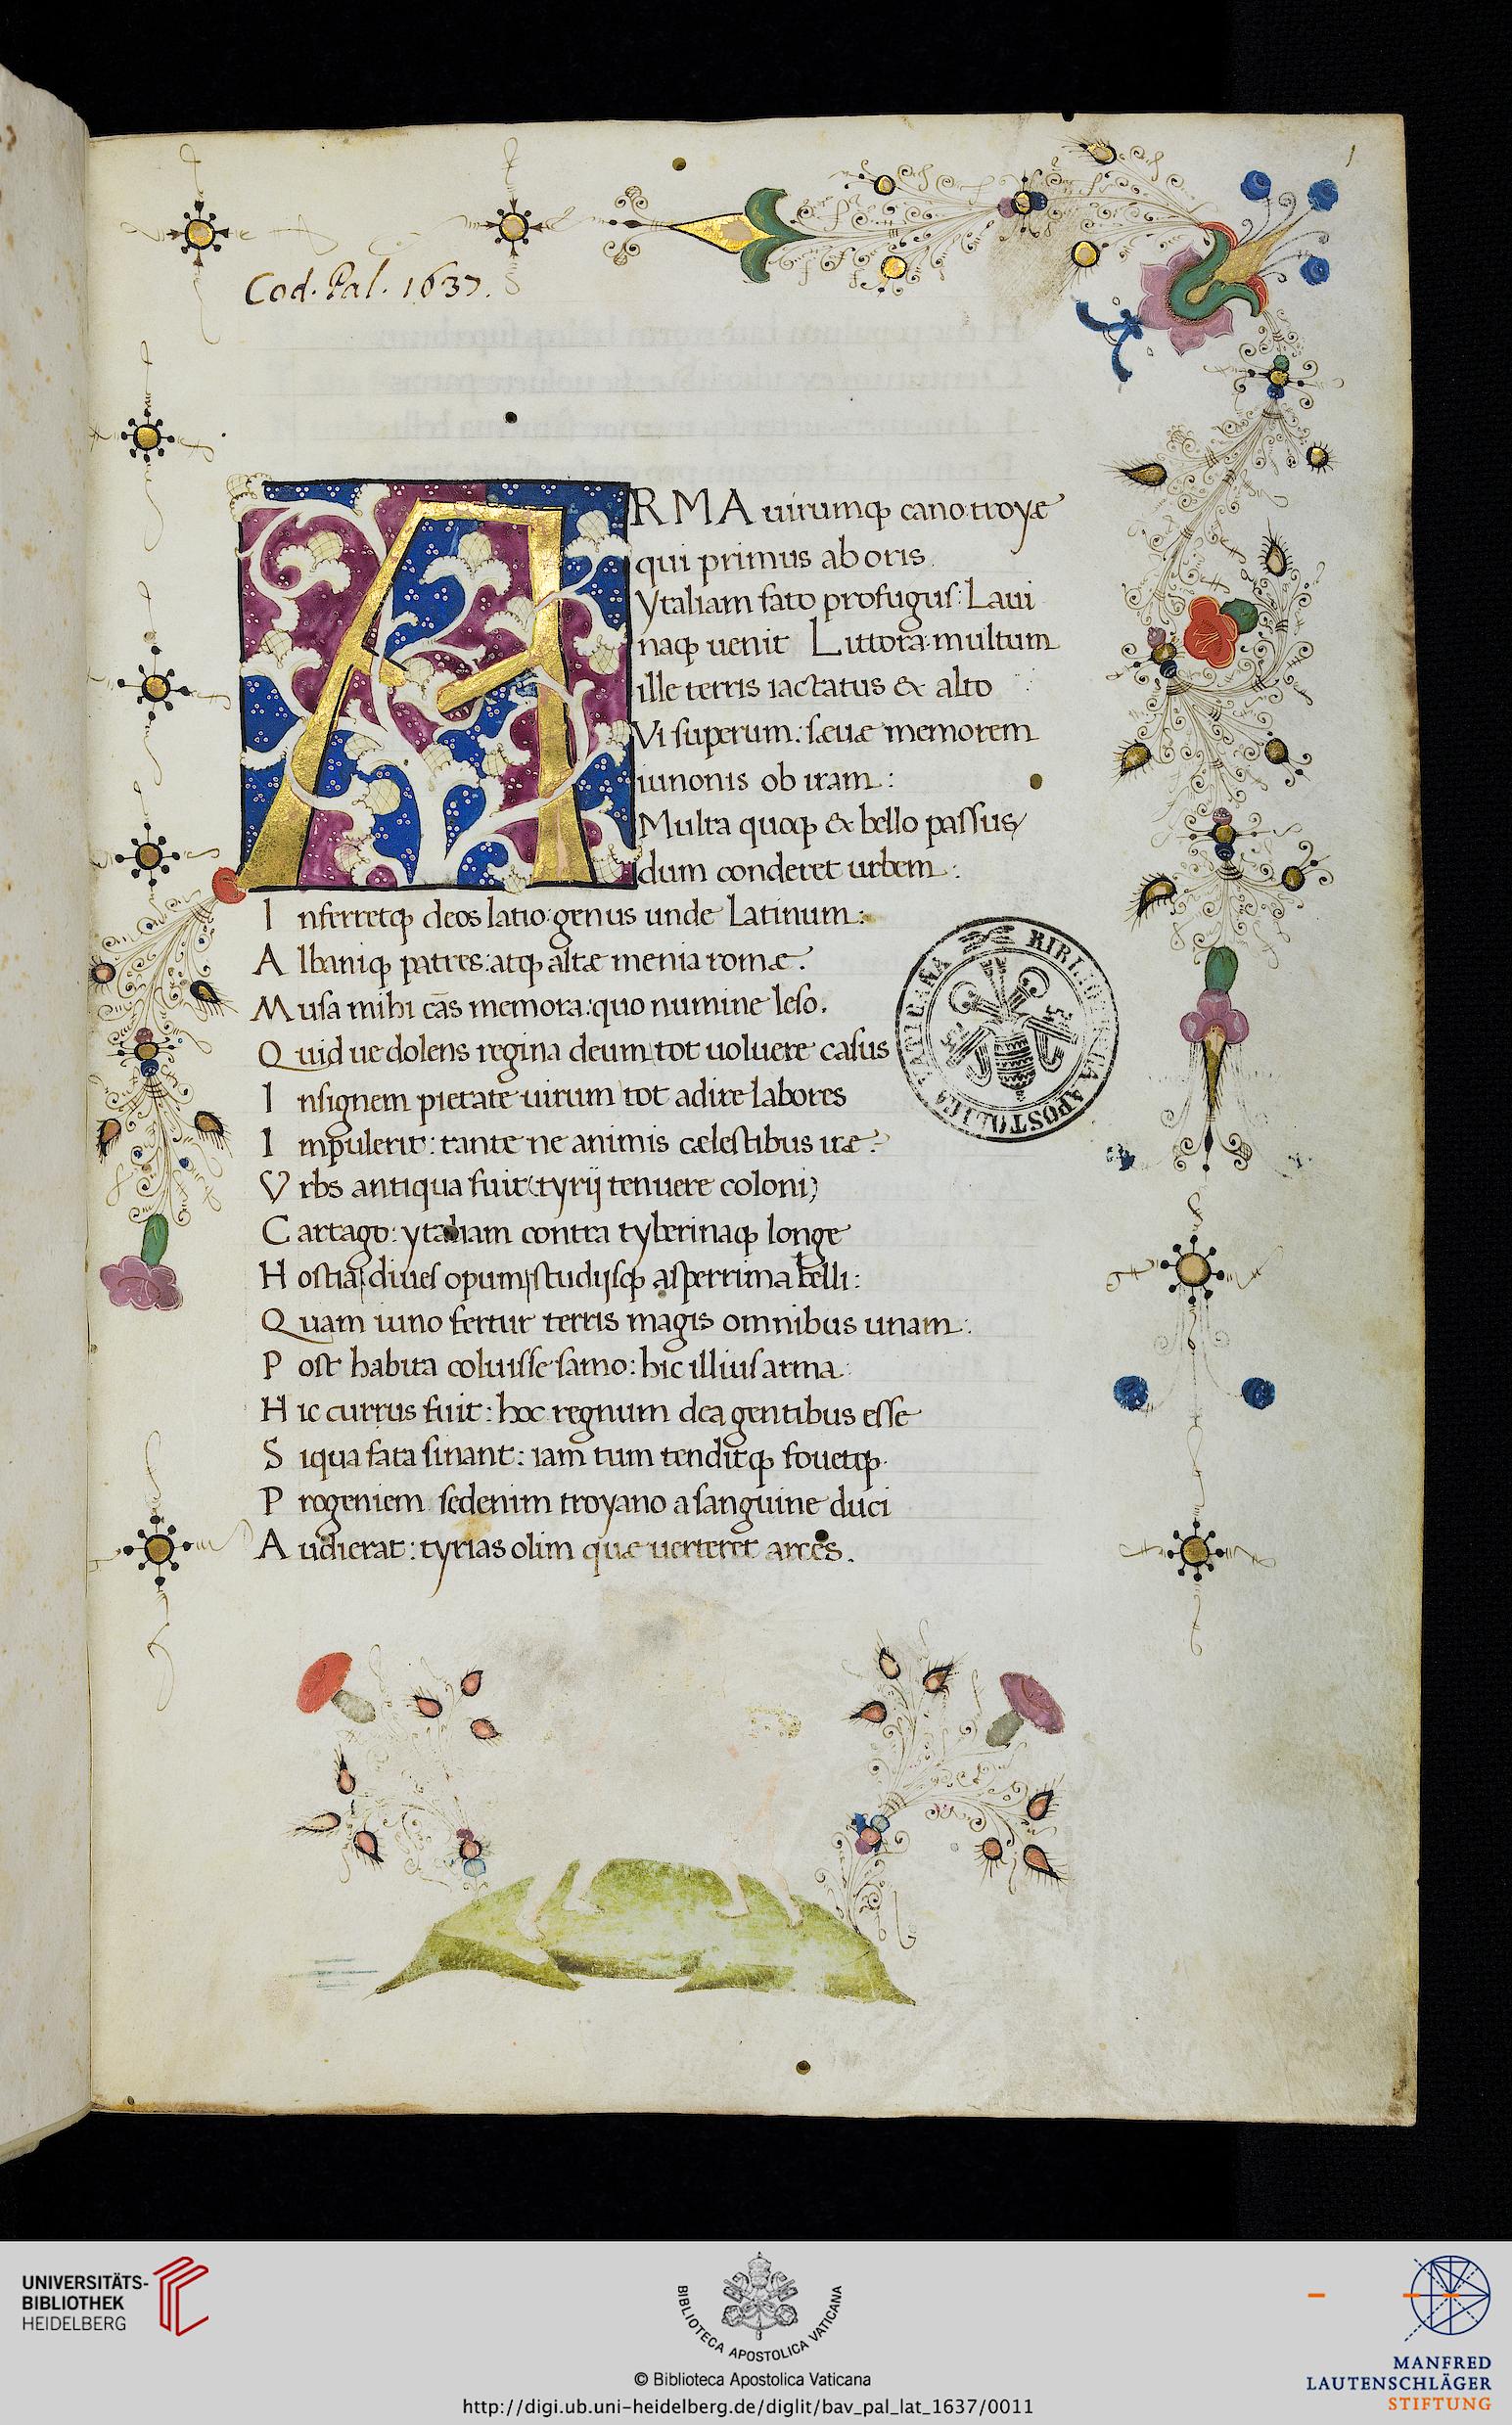 1
Cod. Pal. 1637.
ARMA uirumq; cano troyæ
qui primus ab oris.
Ytaliam fato profugus: Laui
naq; uenit Littora: multum
ille terris iactatus & alto
Vi superum: sæuæ memorem
iunonis ob iram:
Multa quoq; & bello passus
dum conderet urbem:
Inferretq; deos latio: genus unde Latinum:
Albaniq; patres: atq; altæ menia romæ.
Musa mihi cās memora: quo numine leso.
Quid ue dolens regina deum tot uoluere casus
Insignem pietate uirum tot adire labores
Impulerit: tante ne animis cælestibus iræ?
Vrbs antiqua fuit (tyrij tenuere coloni)
Cartago: ytaliam contra tyberinaq; longe
Hostia: diues opum, studijsq; asperrima belli:
Quam iuno fertur terris magis omnibus unam:
Post habita coluisse samo: hic illius arma
Hic currus fuit: hoc regnum dea gentibus esse
Siqua fata sinant: iam tum tenditq; fouetq;.
Progeniem sedenim troyano a sanguine duci
Audierat: tyrias olim quæ uerteret arces.
BIBLIOTHECA APOSTOLICA VATICANA
UNIVERSITÄTS-
BIBLIOTHEK
HEIDELBERG
BIBLIOTECA APOSTOLICA VATICANA
© Biblioteca Apostolica Vaticana
http://digi.ub.uni-heidelberg.de/diglit/bav_pal_lat_1637/0011
MANFRED
LAUTENSCHLÄGER
STIFTUNG